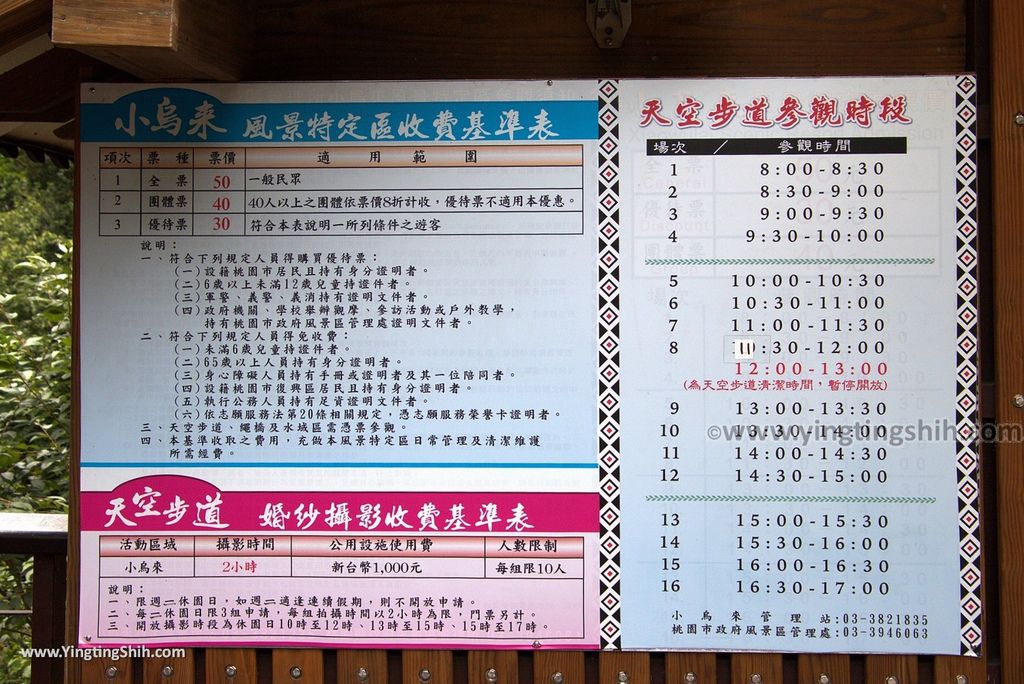 小烏來 風景特定區收費基準表
項次 票種 票價 適用範圍
1 全票 50 一般民眾
2 團體票 40 40人以上之團體依票價8折計收，優待票不適用本優惠。
3 優待票 30 符合本表說明一所列條件之遊客
說明：
一、符合下列規定人員得購買優待票：
(一)設籍桃園市居民且持有身分證明者。
(二)6歲以上未滿12歲兒童持證件者。
(三)軍警、義警、義消持有證明文件者。
(四)政府機關、學校舉辦觀摩、參訪活動或戶外教學，
持有桃園市政府風景區管理處證明文件者。
二、符合下列規定人員得免收費：
(一)未滿6歲兒童持證件者。
(二)65歲以上人員持有身分證明者。
(三)身心障礙人員持有手冊或證明者及其一位陪同者。
(四)設籍桃園市復興區居民且持有身分證明者。
(五)執行公務人員持有足資證明文件者。
(六)依志願服務法第20條相關規定，憑志願服務榮譽卡證明者。
三、天空步道、繩橋及水域區需憑票參觀。
四、本基準收取之費用，充做本風景特定區日常管理及清潔維護
所需經費。
天空步道 婚紗攝影收費基準表
活動區域 攝影時間 公用設施使用費 人數限制
小烏來 2小時 新台幣1,000元 每組限10人
說明：
一、限週二休園日，如週二適逢連續假期，則不開放申請。
二、每二休園日限3組申請，每組拍攝時間以2小時為限，門票另計。
三、開放攝影時段為休園日10時至12時、13時至15時、15時至17時。
天空步道參觀時段
場次 / 參觀時間
1 8:00-8:30
2 8:30-9:00
3 9:00-9:30
4 9:30-10:00
5 10:00-10:30
6 10:30-11:00
7 11:00-11:30
8 11:30-12:00
12:00-13:00
(為天空步道清潔時間，暫停開放)
9 13:00-13:30
10 13:30-14:00
11 14:00-14:30
12 14:30-15:00
13 15:00-15:30
14 15:30-16:00
15 16:00-16:30
16 16:30-17:00
小烏來管理站:03-3821835
桃園市政府風景區管理處:03-3946063
©www.YingtingShih.com
www.YingtingShih.com